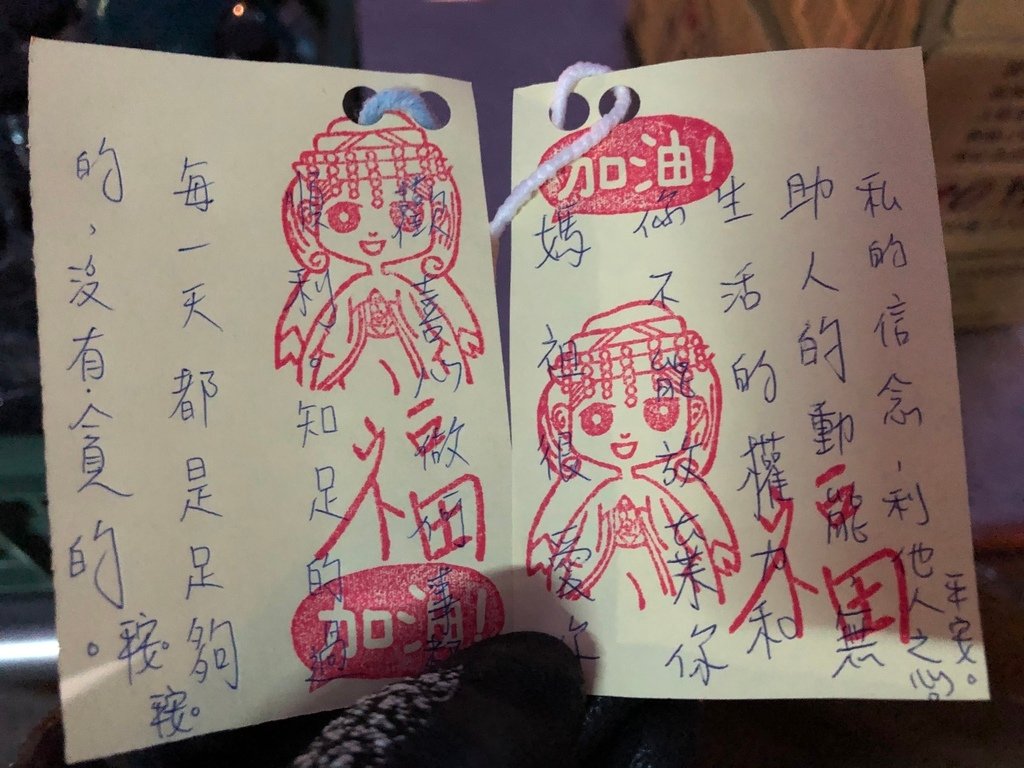 加油!
媽祖很愛你
你不能放棄你
生活的權力和
助人的動能無
私的信念,利他人之心。
平安。
福
願喜心做
順利。知足的過
每一天都是足夠
的,沒有貪的。
福
加油!